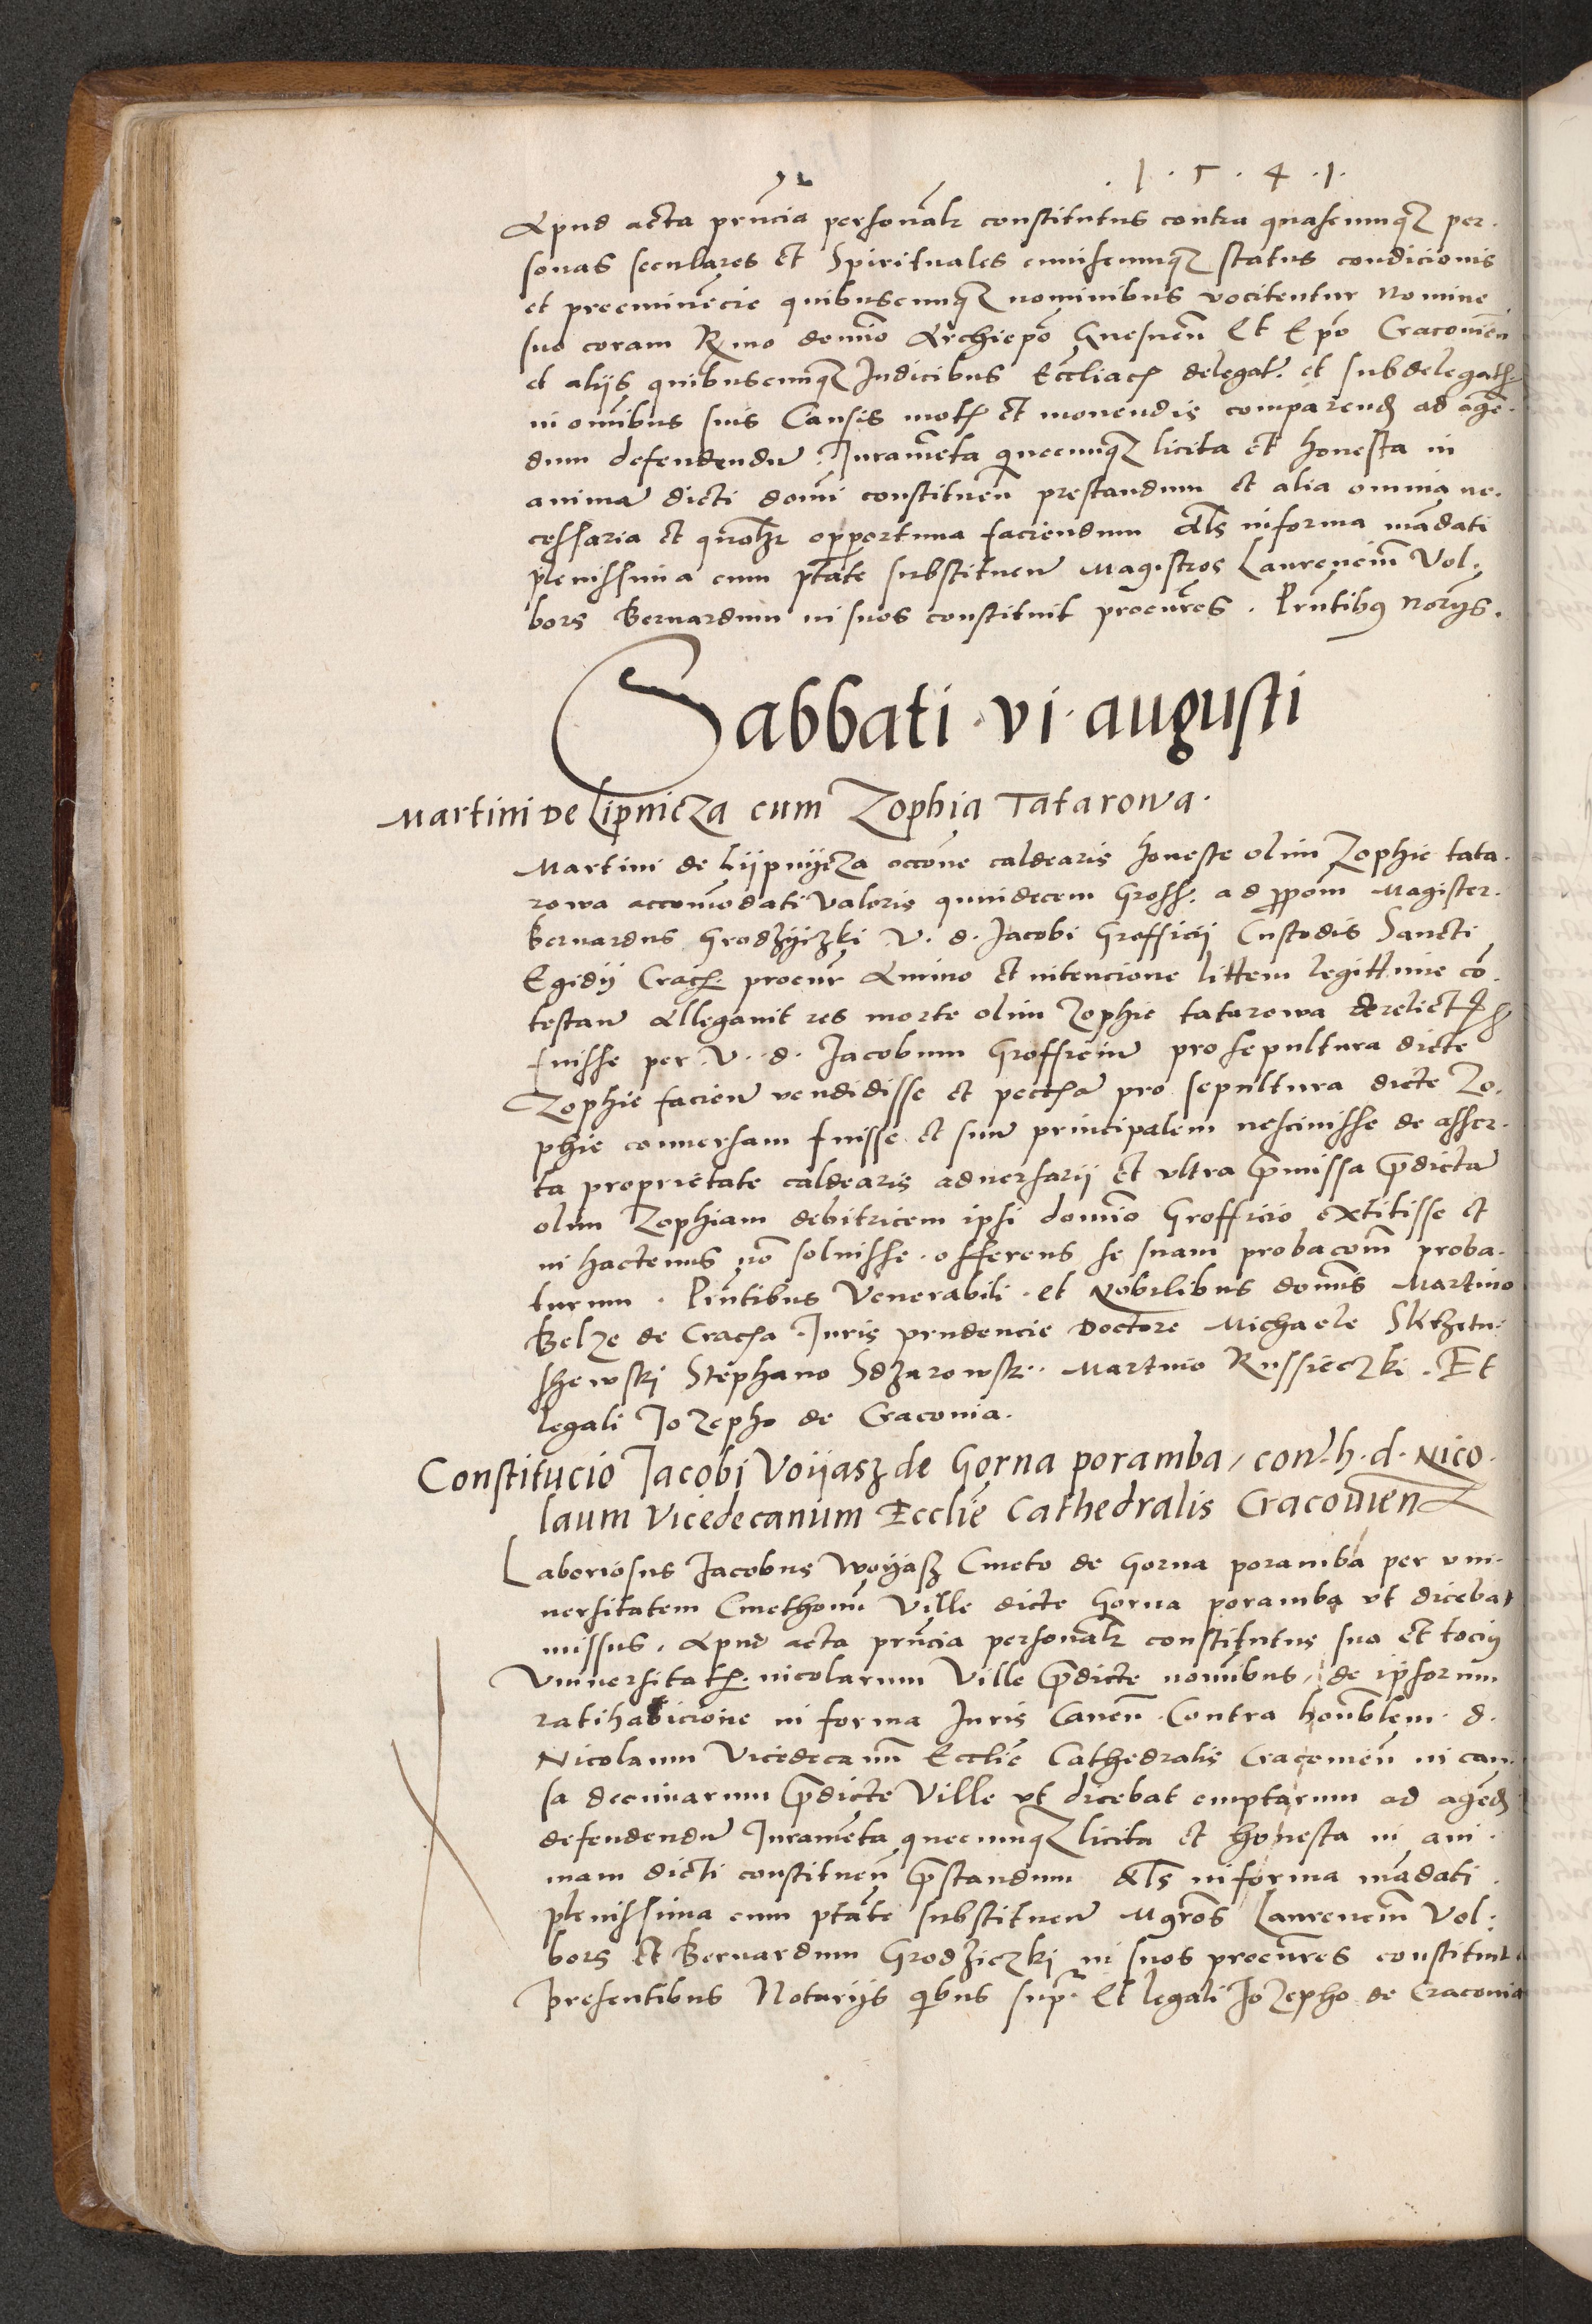 .1.5.4.1.
Apud acta pn̄cia personalr̄ constitutus contra quascumqꝫ per-
sonas seculares et Spirituales cuiuscumqꝫ status condicionis
et preeminēcie quibuscumqꝫ nominibus vocitentur nomine
suo coram Rmo domīo Archiepō Gnesnen̄ Et Epō Cracouien̄
et alijs quibuscumqꝫ Judicibus Eccliac̄ delegat. et subdelegatꝭ
in om̄ibus suis Causis motꝭ et mouendis comparend ad agē-
dum defendendū. Juramēta quecumqꝫ licita et honesta in
animā dicti domī constituen̄ prestandum et alia omnia ne-
cessaria et quōlzt opportuna faciendum als in forma mādati
plenissima cum ptāte substituen̄ Magistros Laurenciū Vol-
bors Bernardum in suos constituit procūres. Pn̄tibꝰ Norijs.
Sabbati · vi · augusti
Martini de Lipnicza cum Zophia Tatarowa.
Martini de Lijpnijcza occōne caldearis honeste olim Zophie tata-
rowa accomōdati valoris quindecem Gross. ad ꝓpōm Magister
Bernardus Grodzijczki V. d. Jacobi Grofficij Custodis Sancti
Egidij Cracꝭ. procur̄ Animo et intencione littem legittime cō-
testan̄ Allegauit res morte olim Zophie tatarowa derelictꝭ
fuisse per V. d. Jacobum Grofficiū pro sepultura dicte
Zophie facien̄ vendidisse et peccīa pro sepultura dicte Zo-
phie conuersam fuisse et suū principalem nesciuisse de asser-
ta proprietate caldearis aduersarij Et vltra p̄missa p̄dictā
olim Zophiam debitricem ipsi domīo Grofficio extitisse et
in hactenus nō soluisse. offerens se suam probacōm proba-
turum. Pn̄tibus Venerabili. et Nobilibus domīs Martino
Belze de Cracꝭa Juris prudencie Doctore Michaele Sktzetu-
shewskj Stephano Sdzarowsk. Martino Russieczki. Et
legali Jozepho de Cracouia.
Constitucio Jacobi Voijasz de Gorna poramba, con̄ h. d. Nico-
laum Vicedecanum Ecclīe Cathedralis Cracouien̄
Laboriosus Jacobus Woijasz Cmeto de Gorna poramba per vni-
uersitatem Cmethonū Ville dicte Gorna poramba vt dicebat
missus. Apud acta pn̄cia personalr̄ constitutus suo et tociꝰ
Vniuersitatꝭ. nicolarum Ville p̄dicte nomībus, de ipsorum
ratihabicione in forma Juris Cauen̄. Contra honīblem. d.
Nicolaum Vicedecanū Ecclīe Cathedralis Cracouien̄ in cau-
sa decimarum p̄dicte Ville vt dicebat emptarum ad agēd
defendendū Juramēta quecumqꝫ licita et honesta in ani-
mam dicti constituen̄ p̄standum als in forma mādati
plenissima cum ptāte substituen̄ Mgr̄os Laurenciū Vol-
bors et Bernardum Grodziczki in suos procūres constituit.
Presentibus Notarijs qibus supr̄. Et legali Jozepho de Cracouia